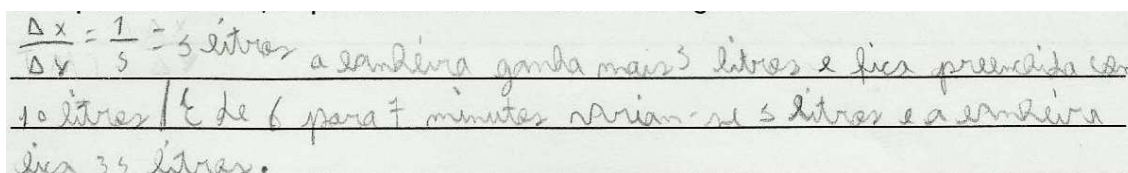 Δx/Δy = 1/5 = 5 litros a banheira ganha mais 5 litros e fica preenchida com
10 litros / E de 6 para 7 minutos varian-se 5 litros e a banheira
fica 35 litros.